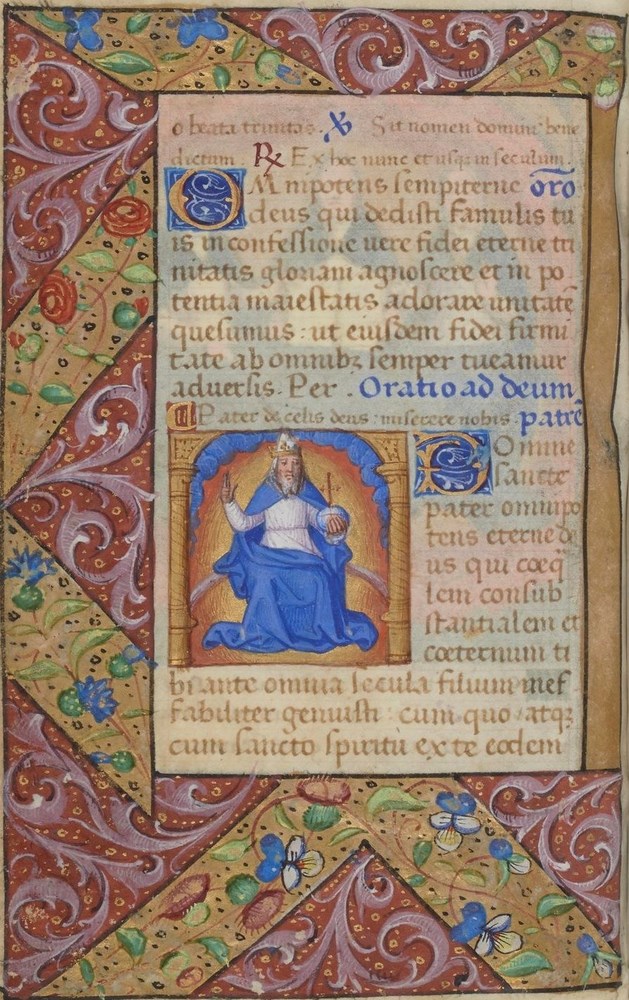 o beata trinitas. V Sit nomen domini bene
dictum. R Ex hoc nunc et usqz in seculum.
Omnipotens sempiterne oro
deus qui dedisti famulis tu
is in confessione uere fidei eterne tri
nitatis gloriam agnoscere et in po
tentia maiestatis adorare unitatē
quesumus: ut eiusdem fidei firmi
tate ab omnibz semper tueamur
aduersis. Per. Oratio ad deum
Pater de celis deus: miserere nobis. patrē
Domine
sancte
pater omnipo
tens eterne de
us qui coeq
lem consub
stantialem et
coeternum ti
bi ante omnia secula filium inef
fabiliter genuisti: cum quo atqz
cum sancto spiritu ex te eodem